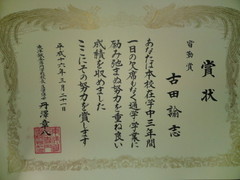 賞状
皆勤賞
古田諭志
あなたは本校在学中三年間
一日の欠席もなく通学し学業に
励み弛まぬ努力を重ね良い
成績を収めました
ここにその努力を賞します
平成十六年三月二十一日